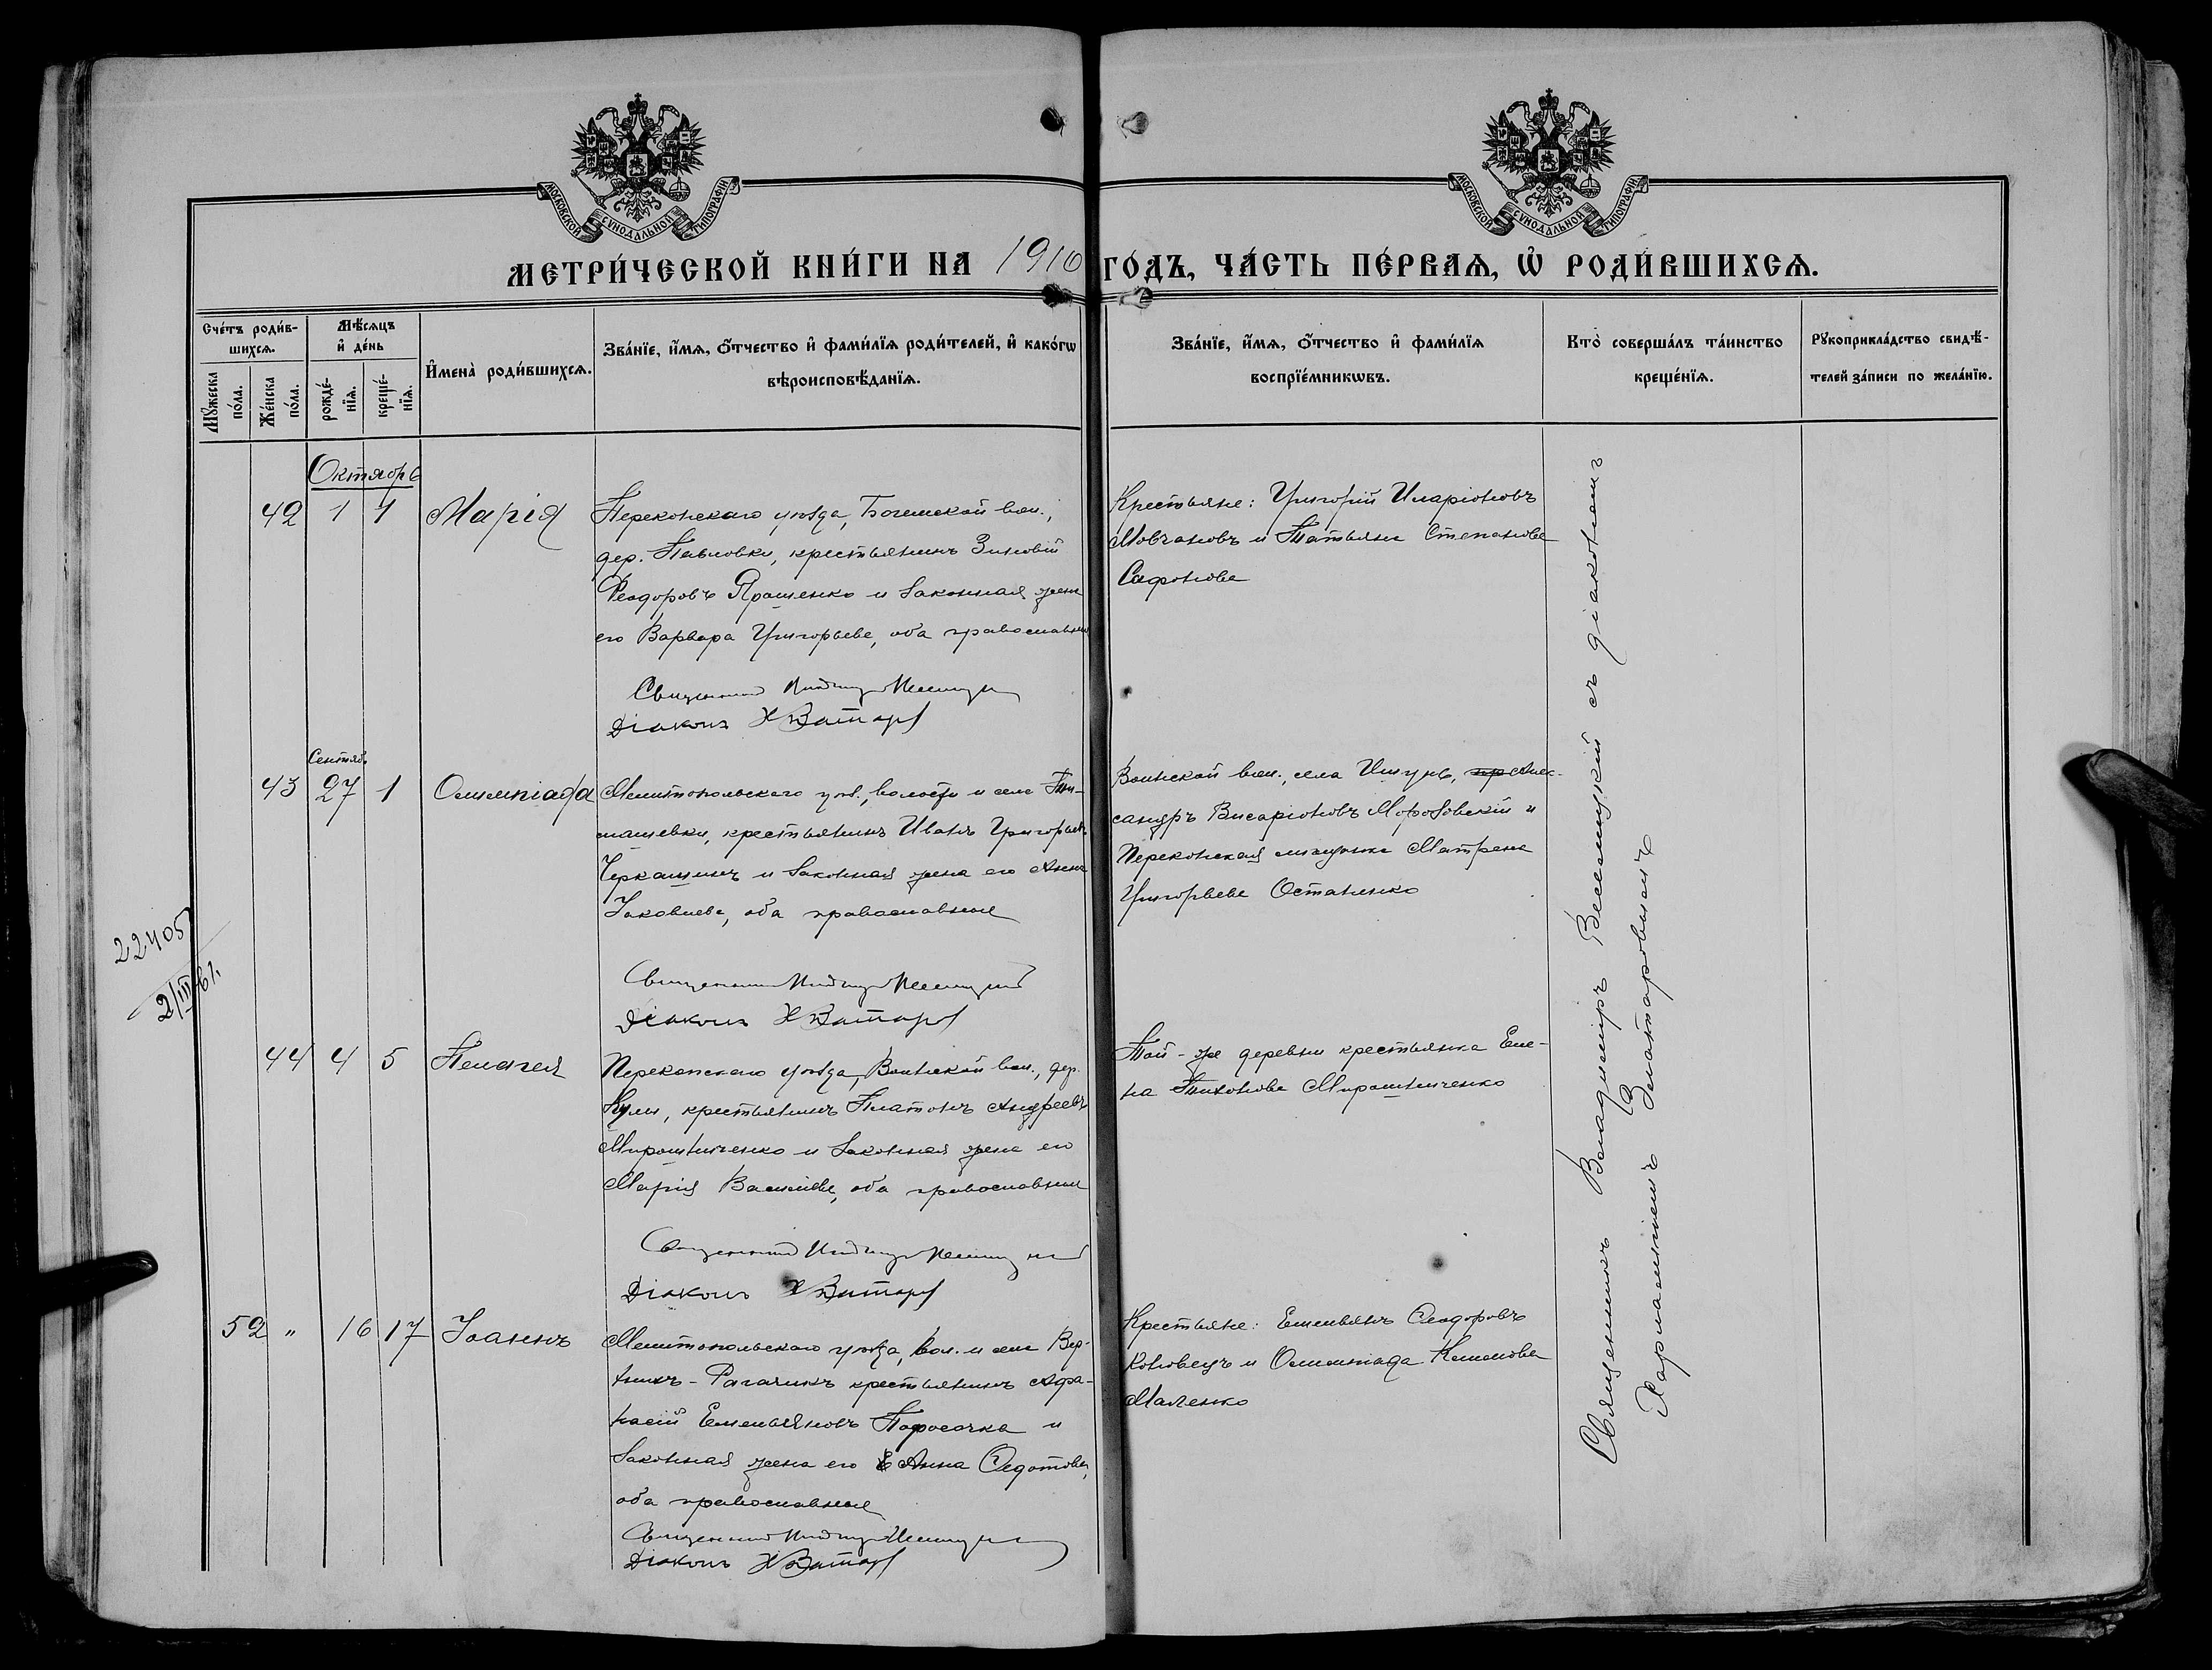 МОСКОВСКОЙ СѴНОДАЛЬНОЙ ТИПОГРАФІИ
МОСКОВСКОЙ СѴНОДАЛЬНОЙ ТИПОГРАФІИ
МЕТРИ́ЧЕСКОЙ КНИ́ГИ НА 1910 ГО́ДЪ, ЧА́СТЬ ПЕ́РВАѦ, Ѡ҆ РОДИ́ВШИХСѦ.
Сче́тъ роди́в-
шихсѧ.
Мꙋ́жеска по́ла.
Же́нска по́ла.
Мѣ́сѧцъ
и҆ де́нь
рожде́-
нїѧ.
креще́-
нїѧ.
И҆мена̀ роди́вшихсѧ.
Зва́нїе, и҆́мѧ, ѻ҆́тчество и҆ фами́лїѧ роди́телей, и҆ како́гѡ
вѣроисповѣ́данїѧ.
Зва́нїе, и҆́мѧ, ѻ҆́тчество и҆ фами́лїѧ
воспрїе́мникѡвъ.
Кто̀ соверша́лъ та́инство
креще́нїѧ.
Рꙋкоприкла́дство свидѣ́-
телей за́писи по жела́нїю.
Октябрь
42 1 1 Марія
Перекопскаго уѣзда, Богемской вол.,
дер. Павловки, крестьянинъ Зиновій
Ѳеодоровъ Ярошенко и законная жена
его Варвара Григорьева, оба православные
Священникъ
Діаконъ Х Златар
Крестьяне: Григорій Иларіоновъ
Мовчановъ и Татьяна Степанова
Сафонова
Сентяб.
43 27 1 Олимпіада
Мелитопольскаго уѣз., волости и села Тим-
ашевки, крестьянинъ Иванъ Григорьевъ
Черкашинъ и законная жена его Анна
Іаковлева, оба православные
Священникъ
Діаконъ Х Златар
Воинской вол., села Ишунь, Алек-
сандръ Висаріоновъ Морозовскій и
Перекопская мѣщанка Матрена
Григорьева Остапенко
22405
2/III 61.
44 4 5 Пелагея
Перекопскаго уѣзда, Воинской вол., дер.
Кулы, крестьянинъ Платонъ Андреевъ
Мирошниченко и законная жена его
Марія Васильева, оба православные
Священникъ
Діаконъ Х Златар
Той-же деревни крестьянка Еле-
на Тихонова Мирошниченко
52 " 16 17 Іоаннъ
Мелитопольскаго уѣзда, вол. и села Вер-
хнихъ-Рагачикъ крестьянинъ Афа-
насій Емельяновъ Поросочка и
законная жена его Анна Ѳедотова,
оба православные
Священникъ
Діаконъ Х Златар
Крестьяне: Емельянъ Ѳеодоровъ
Коновецъ и Олимпіада Климова
Маленко
Священникъ Владиміръ Веселицкій съ діакономъ
Харлампіемъ Златаровымъ